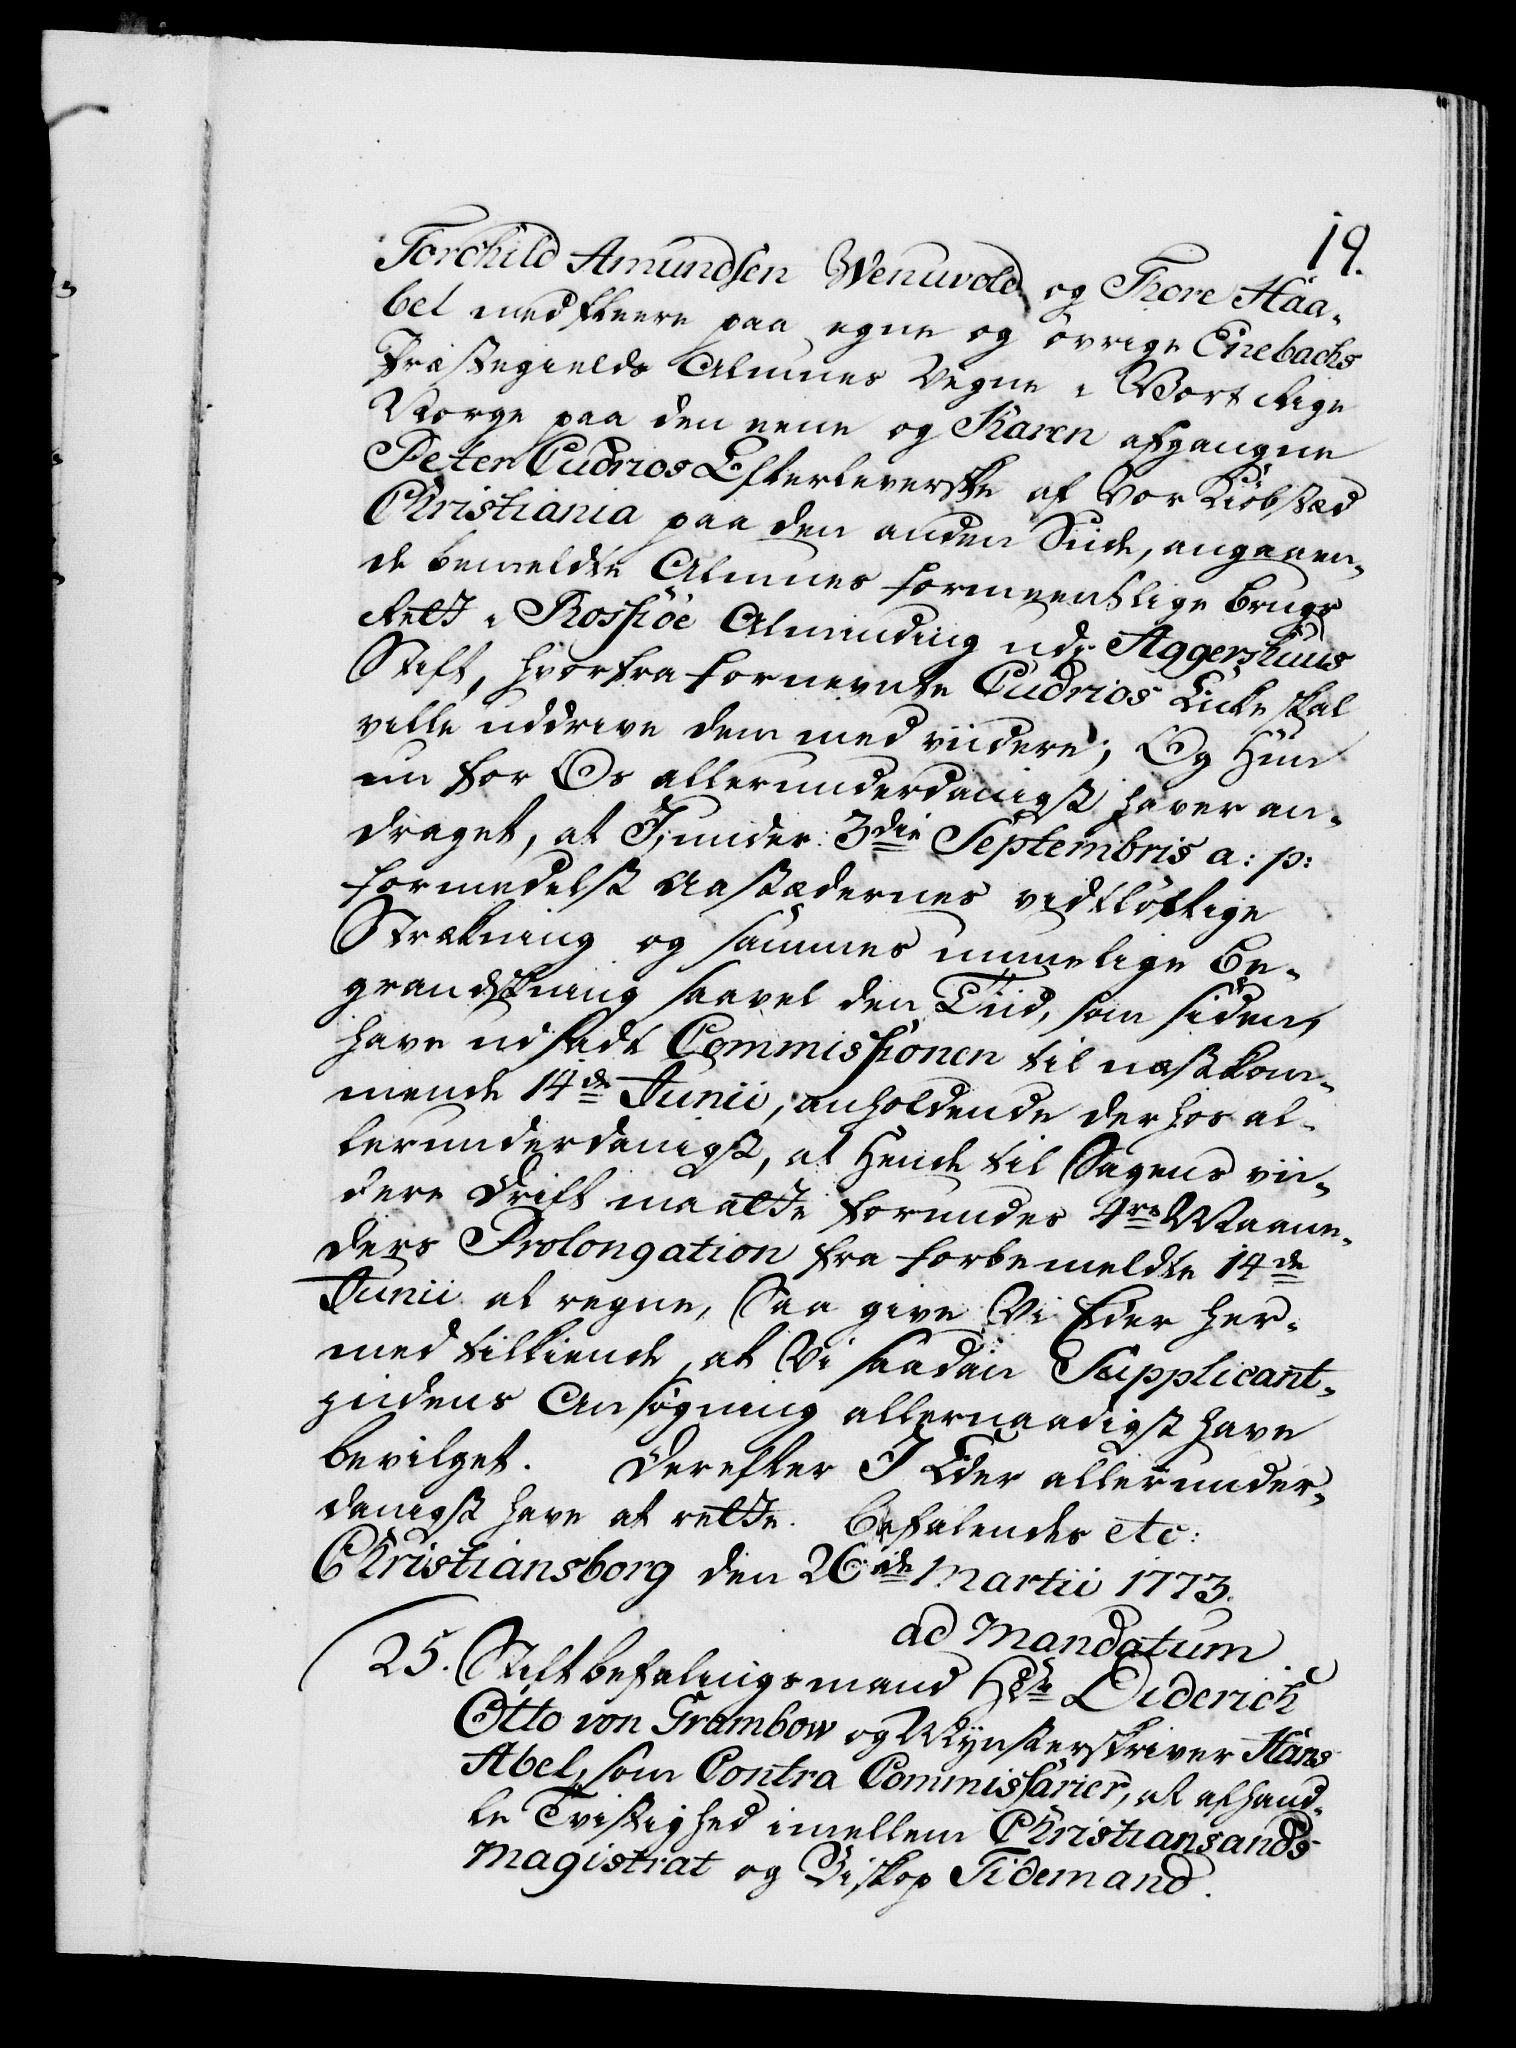 19.
Torchild Amundsen Wenuvold og Thore Haa-
bel med fleere paa egne og øvrige Enebachs
Præstegields Almues Vegne i Vort Rige
Norge paa den eene og Karen afgangne
Peter Cudrios Efterleverske af Vor Kiøbstæd
Christiania paa den anden Siide, angaaen-
de bemeldte Almues formeentlige Brugs
Rett i Rossiøe Alminding udj Aggershuus
Stift, hvorfra fornevnte Cudrios Enke skal
ville uddrive dem med viidere; Og Hun
nu for Os allerunderdanigst haver an-
draget, at I, under 3die Septembris a: p:
formedelst Aastædernes vidtløftige
Strækning og sammes umuelige Be-
grandskning saavel den Tiid, som siden,
have udsadt Commissionen til næstkom-
mende 14de Junii, anholdende derhos al-
lerunderdanigst, at Hende til Sagens vii-
dere Drift maatte forundes 4re Maane-
ders Prolongation fra forbemeldte 14de
Junii at regne, Saa give Vi Eder her-
med tilkiende, at Vi saadan Supplicant-
indens Ansøgning allernaadigst have
bevilget. Derefter I Eder allerunder-
danigst have at rette. Befalendes etc:
Christiansborg den 26de Martii 1773.
ad Mandatum
25. Stiftbefalingsmand Hr Diderich
Otto von Grambow og Mynsterskriver Hans
Abel, som Contra Commissarier, at afhand-
le Tvistighed imellem Christiansands
Magistrat og Biskop Tidemand.